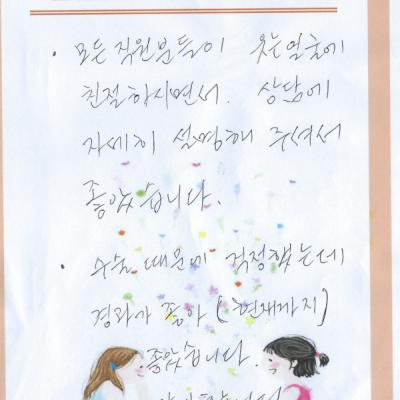 · 모든 직원분들이 웃는얼굴에
친절하시면서. 상담에
자세히 설명해 주셔서
좋았습니다.
· 수술 때문에 걱정했는데
경과가 좋아 (현재까지)
좋았습니다.